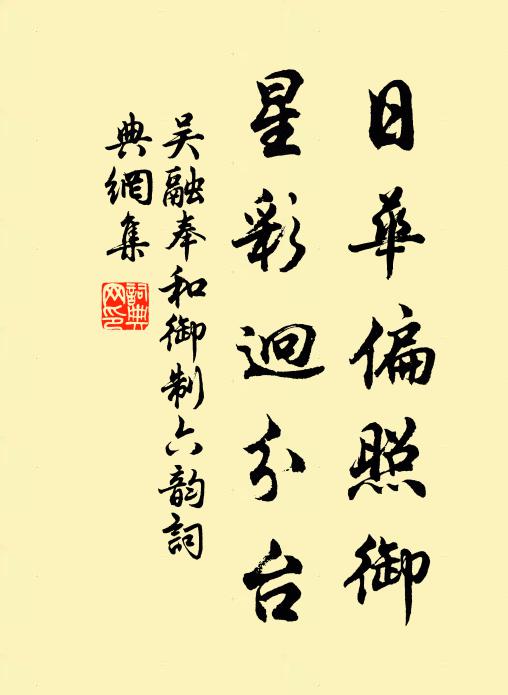 日華偏照御
星彩迥分台
吴融奉和御制六韵詞
典網集
詞典網印